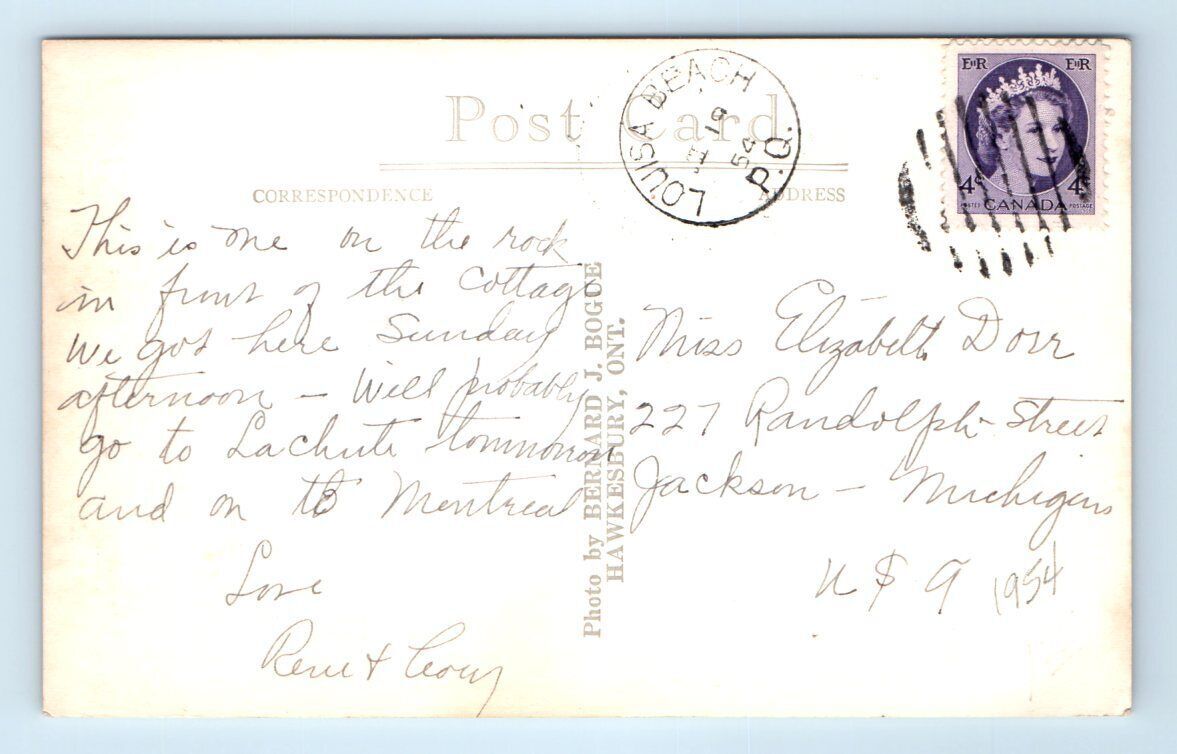 Post Card
CORRESPONDENCE
ADDRESS
LOUISA BEACH
19
54
P.Q.
EIIR EIIR
4c 4c
POSTES CANADA POSTAGE
This is me on the rock
in front of the Cottage
We got here Sunday
afternoon – Will probably
go to Lachute tommorow
and on to Montreal
Love
Rene +
Photo by BERNARD J. BOGUE
HAWKESBURY, ONT.
Miss Elizabeth Dorr
227 Randolph Street
Jackson – Michigan
U S A
1954